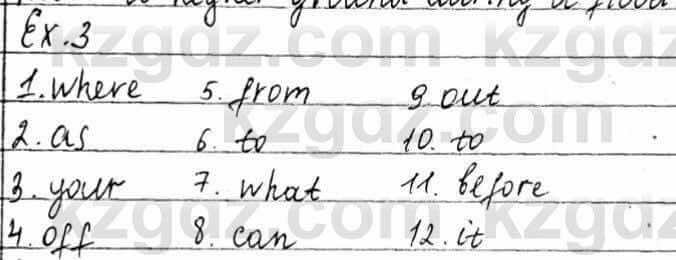 to higher ground during a flood
Ex. 3
1. where 5. from 9. out
2. as 6. to 10. to
3. your 7. what 11. before
4. off 8. can 12. it
kzgdz.com kzgdz.com
kzgdz.com
kzgdz.com kzgdz